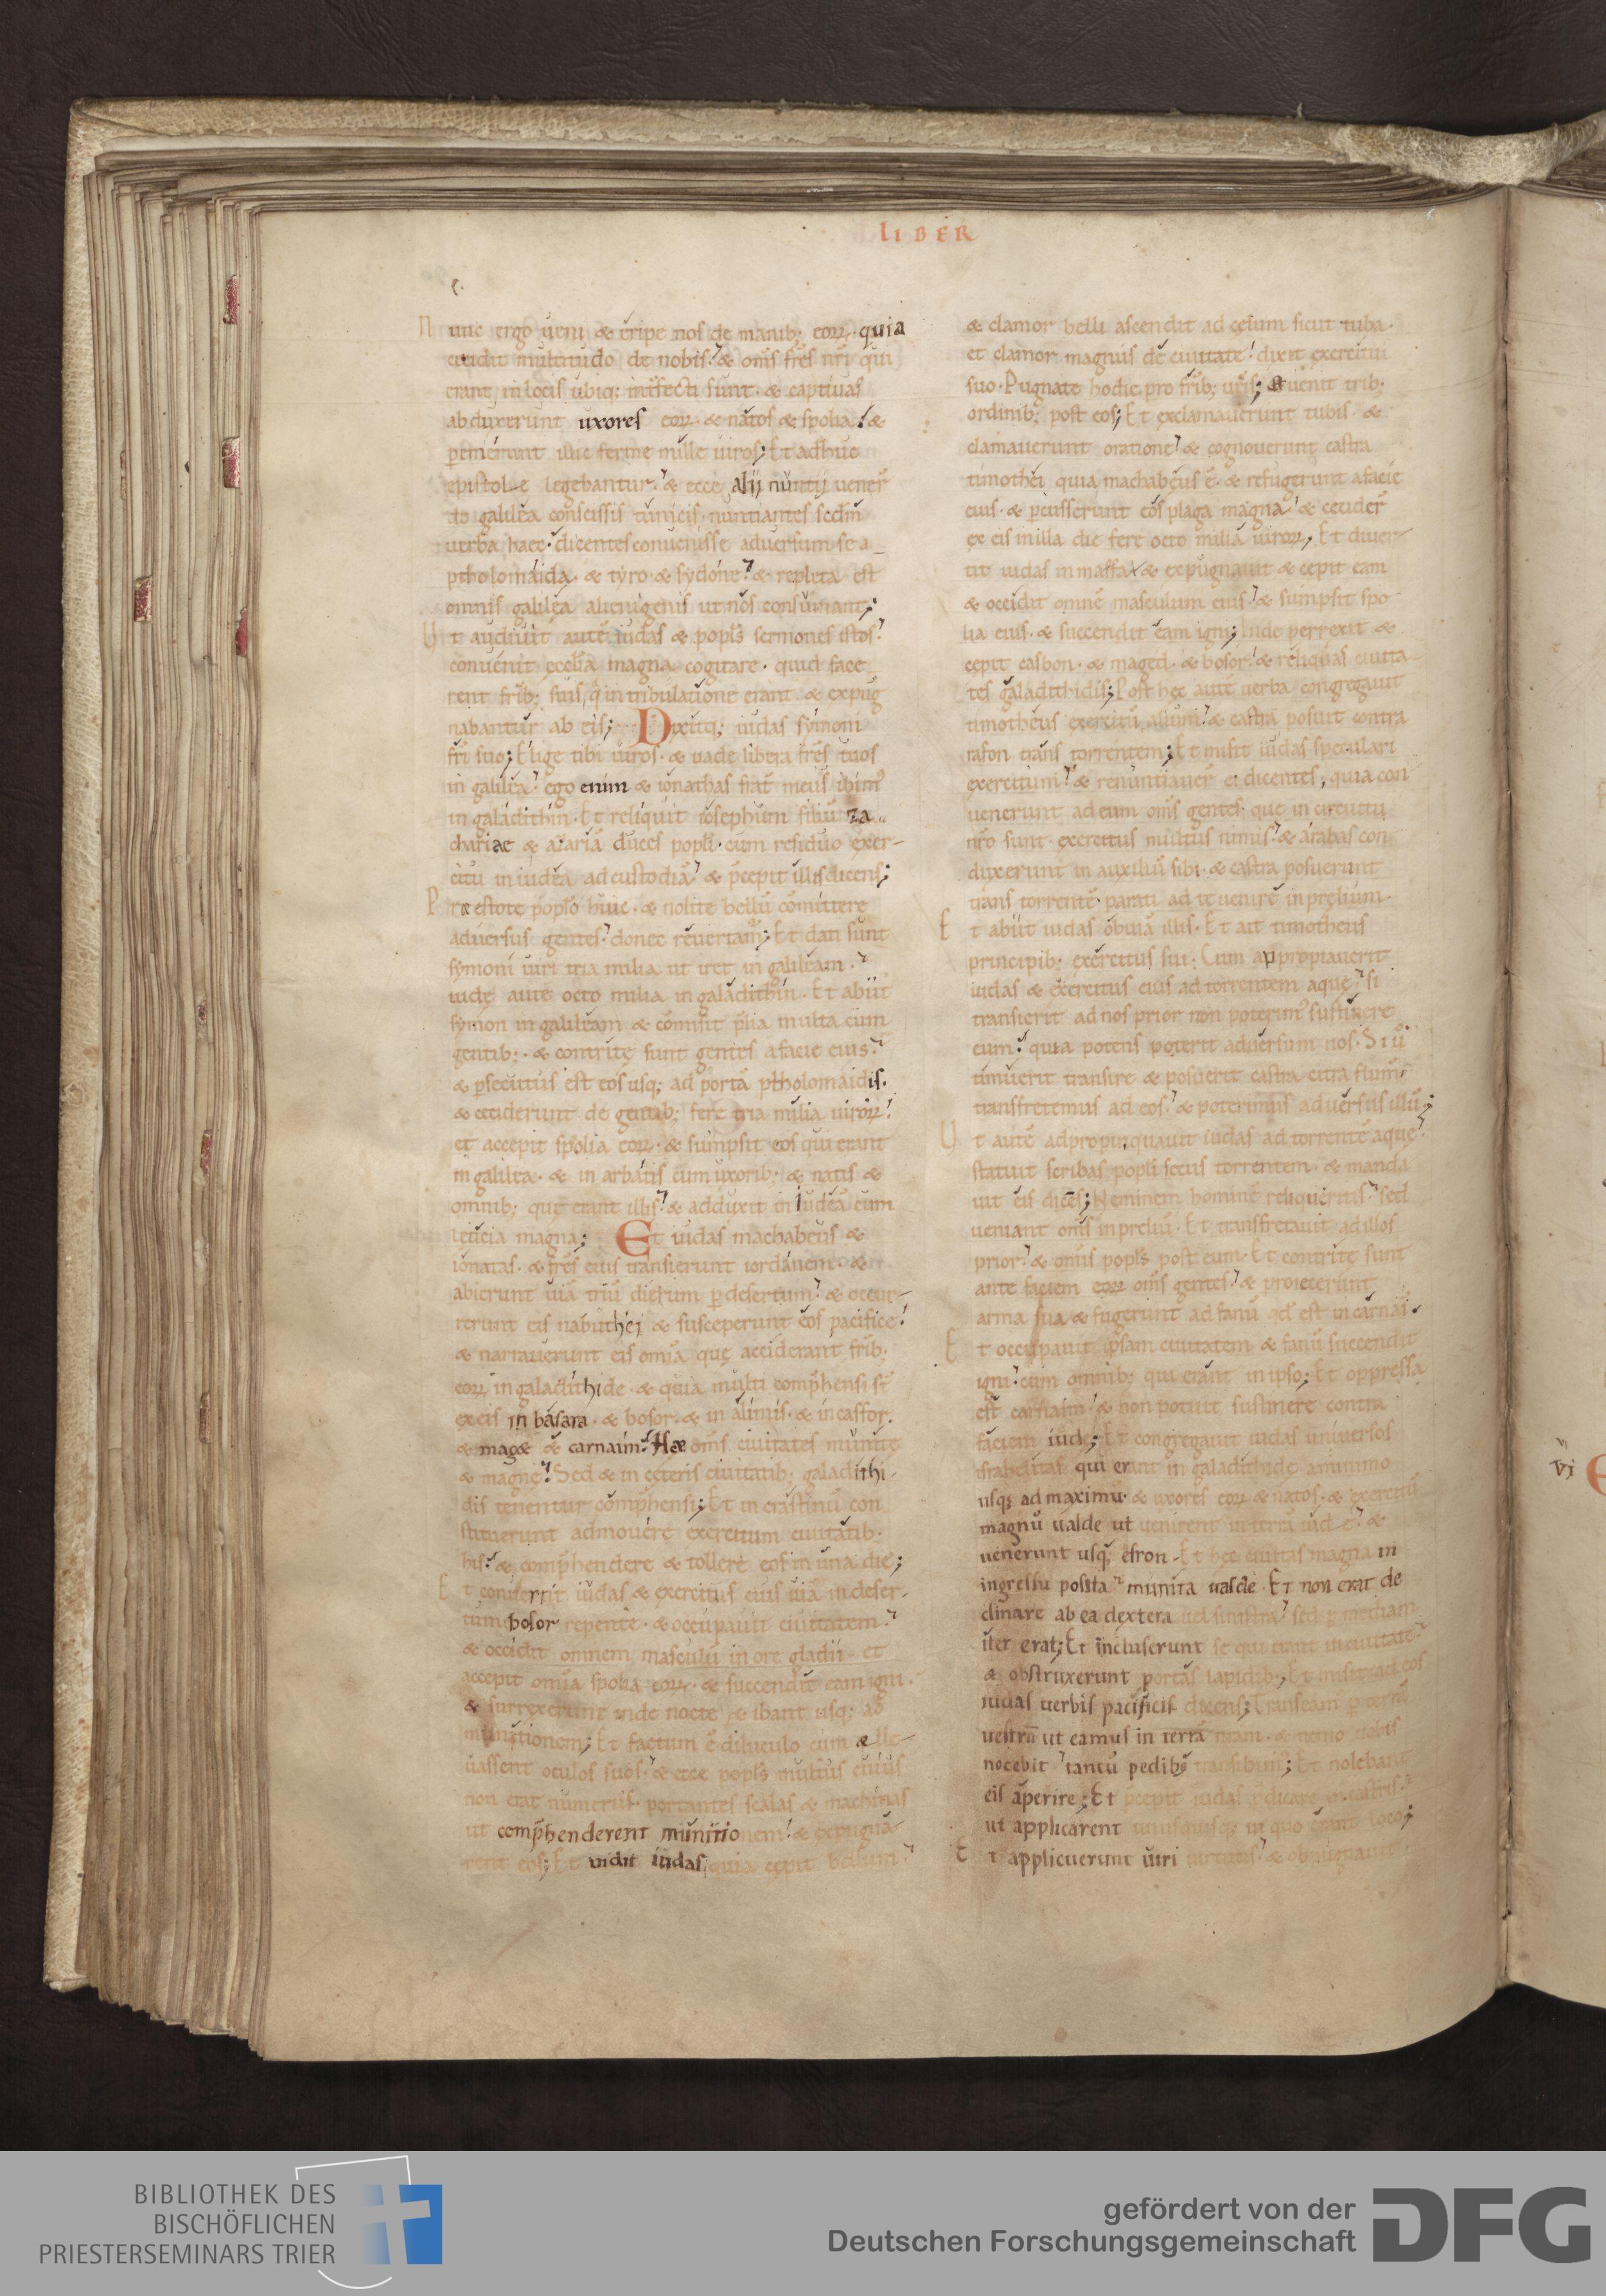 LIBER
Nunc ergo ueni & eripe nos de manib; eoꝝ· quia
cecidit multitudo de nobis· & om̄s fr̄es nr̄i qui
erant in locis ubiq; int̄fecti sunt· & captiuas
abduxerunt uxores eoꝝ· & natos & spolia! &
ꝑemerunt illic ferme mille uiros; Et adhuc
epistole legebantur· & ecce alij nuntij uener̄
de galilea conscissis tunicis nuntiantes scd̄m
uerba haec· dicentes conuenisse aduersum se a
ptholomaida· & tyro & sydone· & repleta est
omnis galilea alienigenis ut nos consumant;
Ut audiuit autē iudas & popl̄s sermones istos·
conuenit eccl̄ia magna cogitare· quid face
rent fr̄ib; suis, q̄ in tribulatione erant & expug
nabantur ab eis; Dixitq; iudas symoni
fr̄i suo; Elige tibi uiros· & uade libera fr̄es tuos
in galilea· ego enim & ionathas frat̄ meus ibim᷒
in galadithin· Et reliquit iosephum filiū za
chariae & azariā duces popl̄i· cum residuo exer-
citu in iudea ad custodiā· & p̄cepit illis dicens;
Prae estote popl̄o huic· & nolite bellū cōmittere
aduersus gentes· donec reuertam᷒; Et dati sunt
symoni uiri tria milia ut iret in galileam·
iudę autē octo milia in galadithin· Et abiit
symon in galileam & cōmisit p̄lia multa cum
gentib;· & contritę sunt gentes a facie eius·
& ꝑsecutus est eos usq; ad portā ptholomaidis·
& ceciderunt de gentib; fere tria milia uiroꝝ!
et accepit spolia eoꝝ· & sumpsit eos qui erant
in galilea· & in arbatis cum uxorib; & natis &
omnib; quę erant illis· & adduxit in iudeā cum
leticia magna; Et iudas machabeus &
ionatas· & fr̄es eius transierunt iordanem· &
abierunt uiā triū dierum ꝑ desertum· & occur-
rerunt eis nabuthei & susceperunt eos pacifice!
& narrauerunt eis omīa quę acciderant fr̄ib;
eoꝝ in galadithide· & quia multi compħensi st̄
ex eis in basara· & bosor· & in alimis· & in casfor·
& mag& & carnaim· Hae om̄s ciuitates munitę
& magnę· Sed & in ceteris ciuitatib; galadithi-
dis tenentur compħensi; Et in crastinū con
stituerunt admouere exercitum ciuitatib;
his· & compħendere & tollere eos in una die;
Et conuertit iudas & exercitus eius uiā in deser-
tum bosor repente· & occupauit ciuitatem·
& occidit omnem masculū in ore gladii· et
accepit omīa spolia eoꝝ· & succendit eam igni·
& surrexerunt inde nocte & ibant usq; ad
munitionem; Et factum ē diluculo cum elle-
uassent oculos suos· & ecce popl̄s multus cuius
non erat numerus· portantes scalas & machinas
ut compħenderent munitionem! & expugna-
rent eos; Et uidit iudas quia cępit bellum·
& clamor belli ascendit ad cęlum sicut tuba·
et clamor magnus de ciuitate! dixit exercitui
suo· Pugnate hodie pro fr̄ib; ur̄is; & uenit trib;
ordinib; post eos; Et exclamauerunt tubis· &
clamauerunt oratione· & cognouerunt castra
timothei quia machabeus ē· & refugerunt a facie
eius· & ꝑcusserunt eos plaga magna· & cecider̄
ex eis in illa die fere octo milia uiroꝝ, Et diuer-
tit iudas in maffa· & expugnauit & cepit eam
& occidit omnē masculum eius· & sumpsit spo
lia eius· & succendit eam igni; Inde perrexit &
cepit casbon· & maged· & bosor· & reliquas ciuita
tes galadithidis; Post hec autē uerba congregauit
timotheus exercitū alium· & castra posuit contra
rafon trans torrentem; Et misit iudas speculari
exercitum· & renuntiauer̄ ei dicentes, quia con
uenerunt ad eum om̄s gentes quę in circuitu
nr̄o sunt· exercitus multus nimis· & arabas con
duxerunt in auxiliū sibi· & castra posuerunt
trans torrentē· parati ad te uenire in prelium·
Et abiit iudas obuiā illis· Et ait timotheus
principib; exercitus sui; Cum appropiauerit
iudas & exercitus eius ad torrentem aquę· si
transierit ad nos prior non poterim᷒ sustinere
eum· quia potens poterit aduersum nos· Si ū
timuerit transire & posuerit castra citra flum̄
transfretemus ad eos· & poterimus aduersus illū;
Ut autē adpropinquauit iudas ad torrentē aquę·
statuit scribas popl̄i secus torrentem· & manda
uit eis dicēs; Neminem hominē reliqueritis· sed
ueniant om̄s in preliū· Et transfretauit ad illos
prior· & om̄is popl̄s post eum· Et contritę sunt
ante faciem eoꝝ om̄s gentes· & proiecerunt
arma sua & fugerunt ad fanū qd̄ est in carnai·
Et occupauit ip̄sam ciuitatem & fanū succendit
igni· cum omnib; qui erant in ipso; Et oppressa
est carnaim· & non potuit sustinere contra
faciem iudę; Et congregauit iudas uniuersos
israhelitas qui erant in galadithide a minimo
usq; ad maximū· & uxores eoꝝ & natos· & exercitū
magnū ualde ut uenirent in terrā iudę· &
uenerunt usq; efron· Et hec ciuitas magna in
ingressu posita· munita ualde· Et non erat de
clinare ab ea dextera uel sinistra· sed ꝑ mediam
iter erat; Et incluserunt se qui erant in ciuitate·
& obstruxerunt portas lapidib;, Et misit ad eos
iudas uerbis pacificis dicens; Transeam ꝑ terrā
uestrā ut eamus in terrā nr̄am· & nemo uobis
nocebit· tantū pedib᷒ transibim᷒; Et nolebant
eis aperire; Et p̄cepit iudas p̄dicare in castris·
ut applicarent unusquisq; in quo erant loco;
Et applicuerunt uiri uirtutis· & obpugnauit
VI
BIBLIOTHEK DES
BISCHÖFLICHEN
PRIESTERSEMINARS TRIER
gefördert von der
Deutschen Forschungsgemeinschaft
DFG